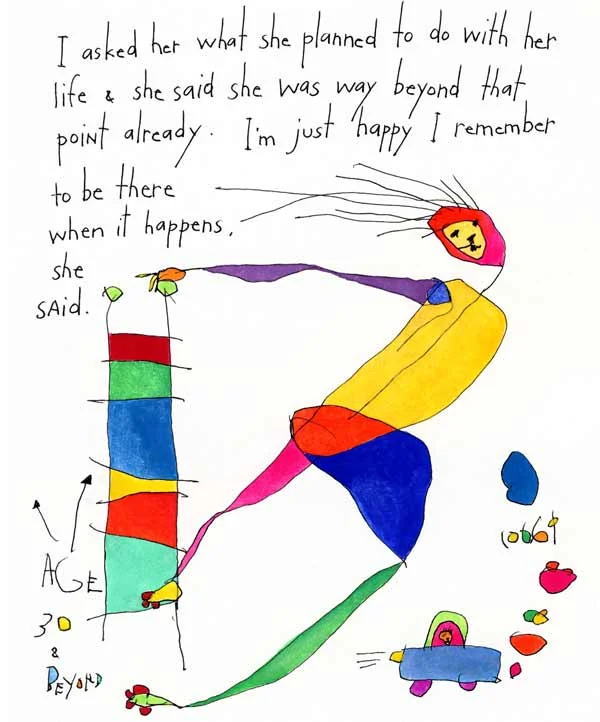 I asked her what she planned to do with her
life & she said she was way beyond that
point already. I'm just happy I remember
to be there
when it happens,
she
SAID.
AGE
30
&
BEYOND